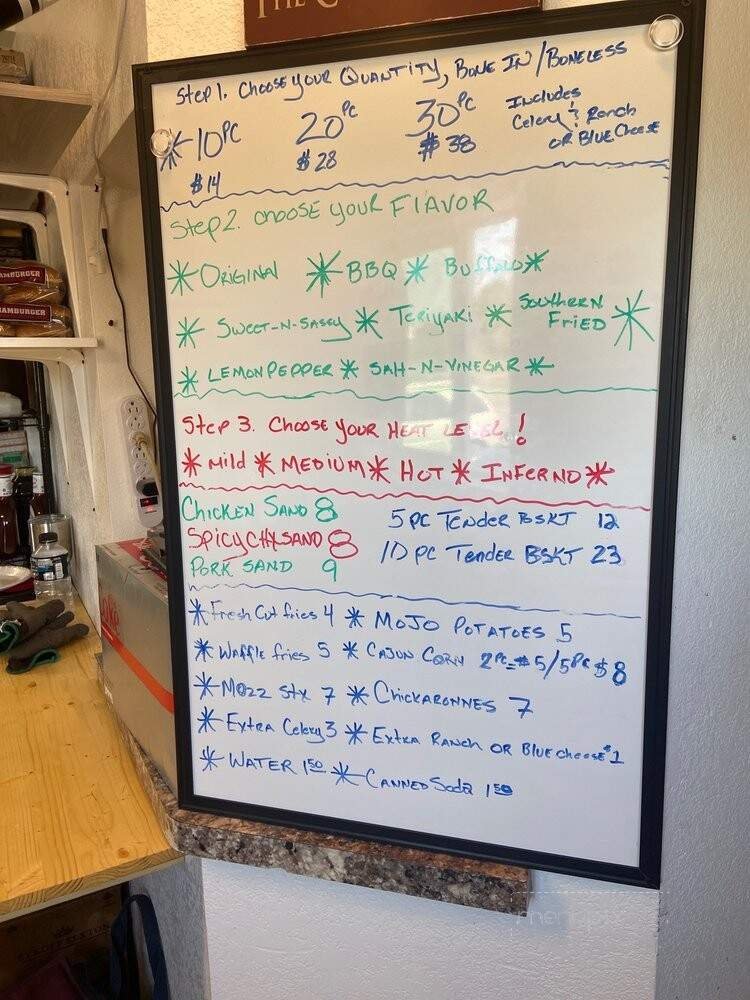 THE C
Step 1. Choose your Quantity, Bone In/Boneless
* 10 PC 20 PC 30 PC
$14 $28 $38
Includes
Celery & Ranch
OR Blue Cheese
Step 2. Choose your Flavor
* Original * BBQ * Buffalo *
* Sweet-N-Sassy * Teriyaki * Southern Fried *
* Lemon Pepper * Salt-N-Vinegar *
Step 3. Choose your Heat Level!
* Mild * Medium * Hot * Inferno *
Chicken Sand 8
Spicy Chx Sand 8
Pork Sand 9
5 PC Tender BSKT 12
10 PC Tender BSKT 23
* Fresh Cut fries 4 * Mojo Potatoes 5
* Waffle fries 5 * Cajun Corn 2PC=$5/5PC $8
* Mozz Stx 7 * Chickaronnes 7
* Extra Celery 3 * Extra Ranch OR Blue Cheese $1
* Water 1 50 * Canned Soda 1 50
HAMBURGER
HAMBURGER